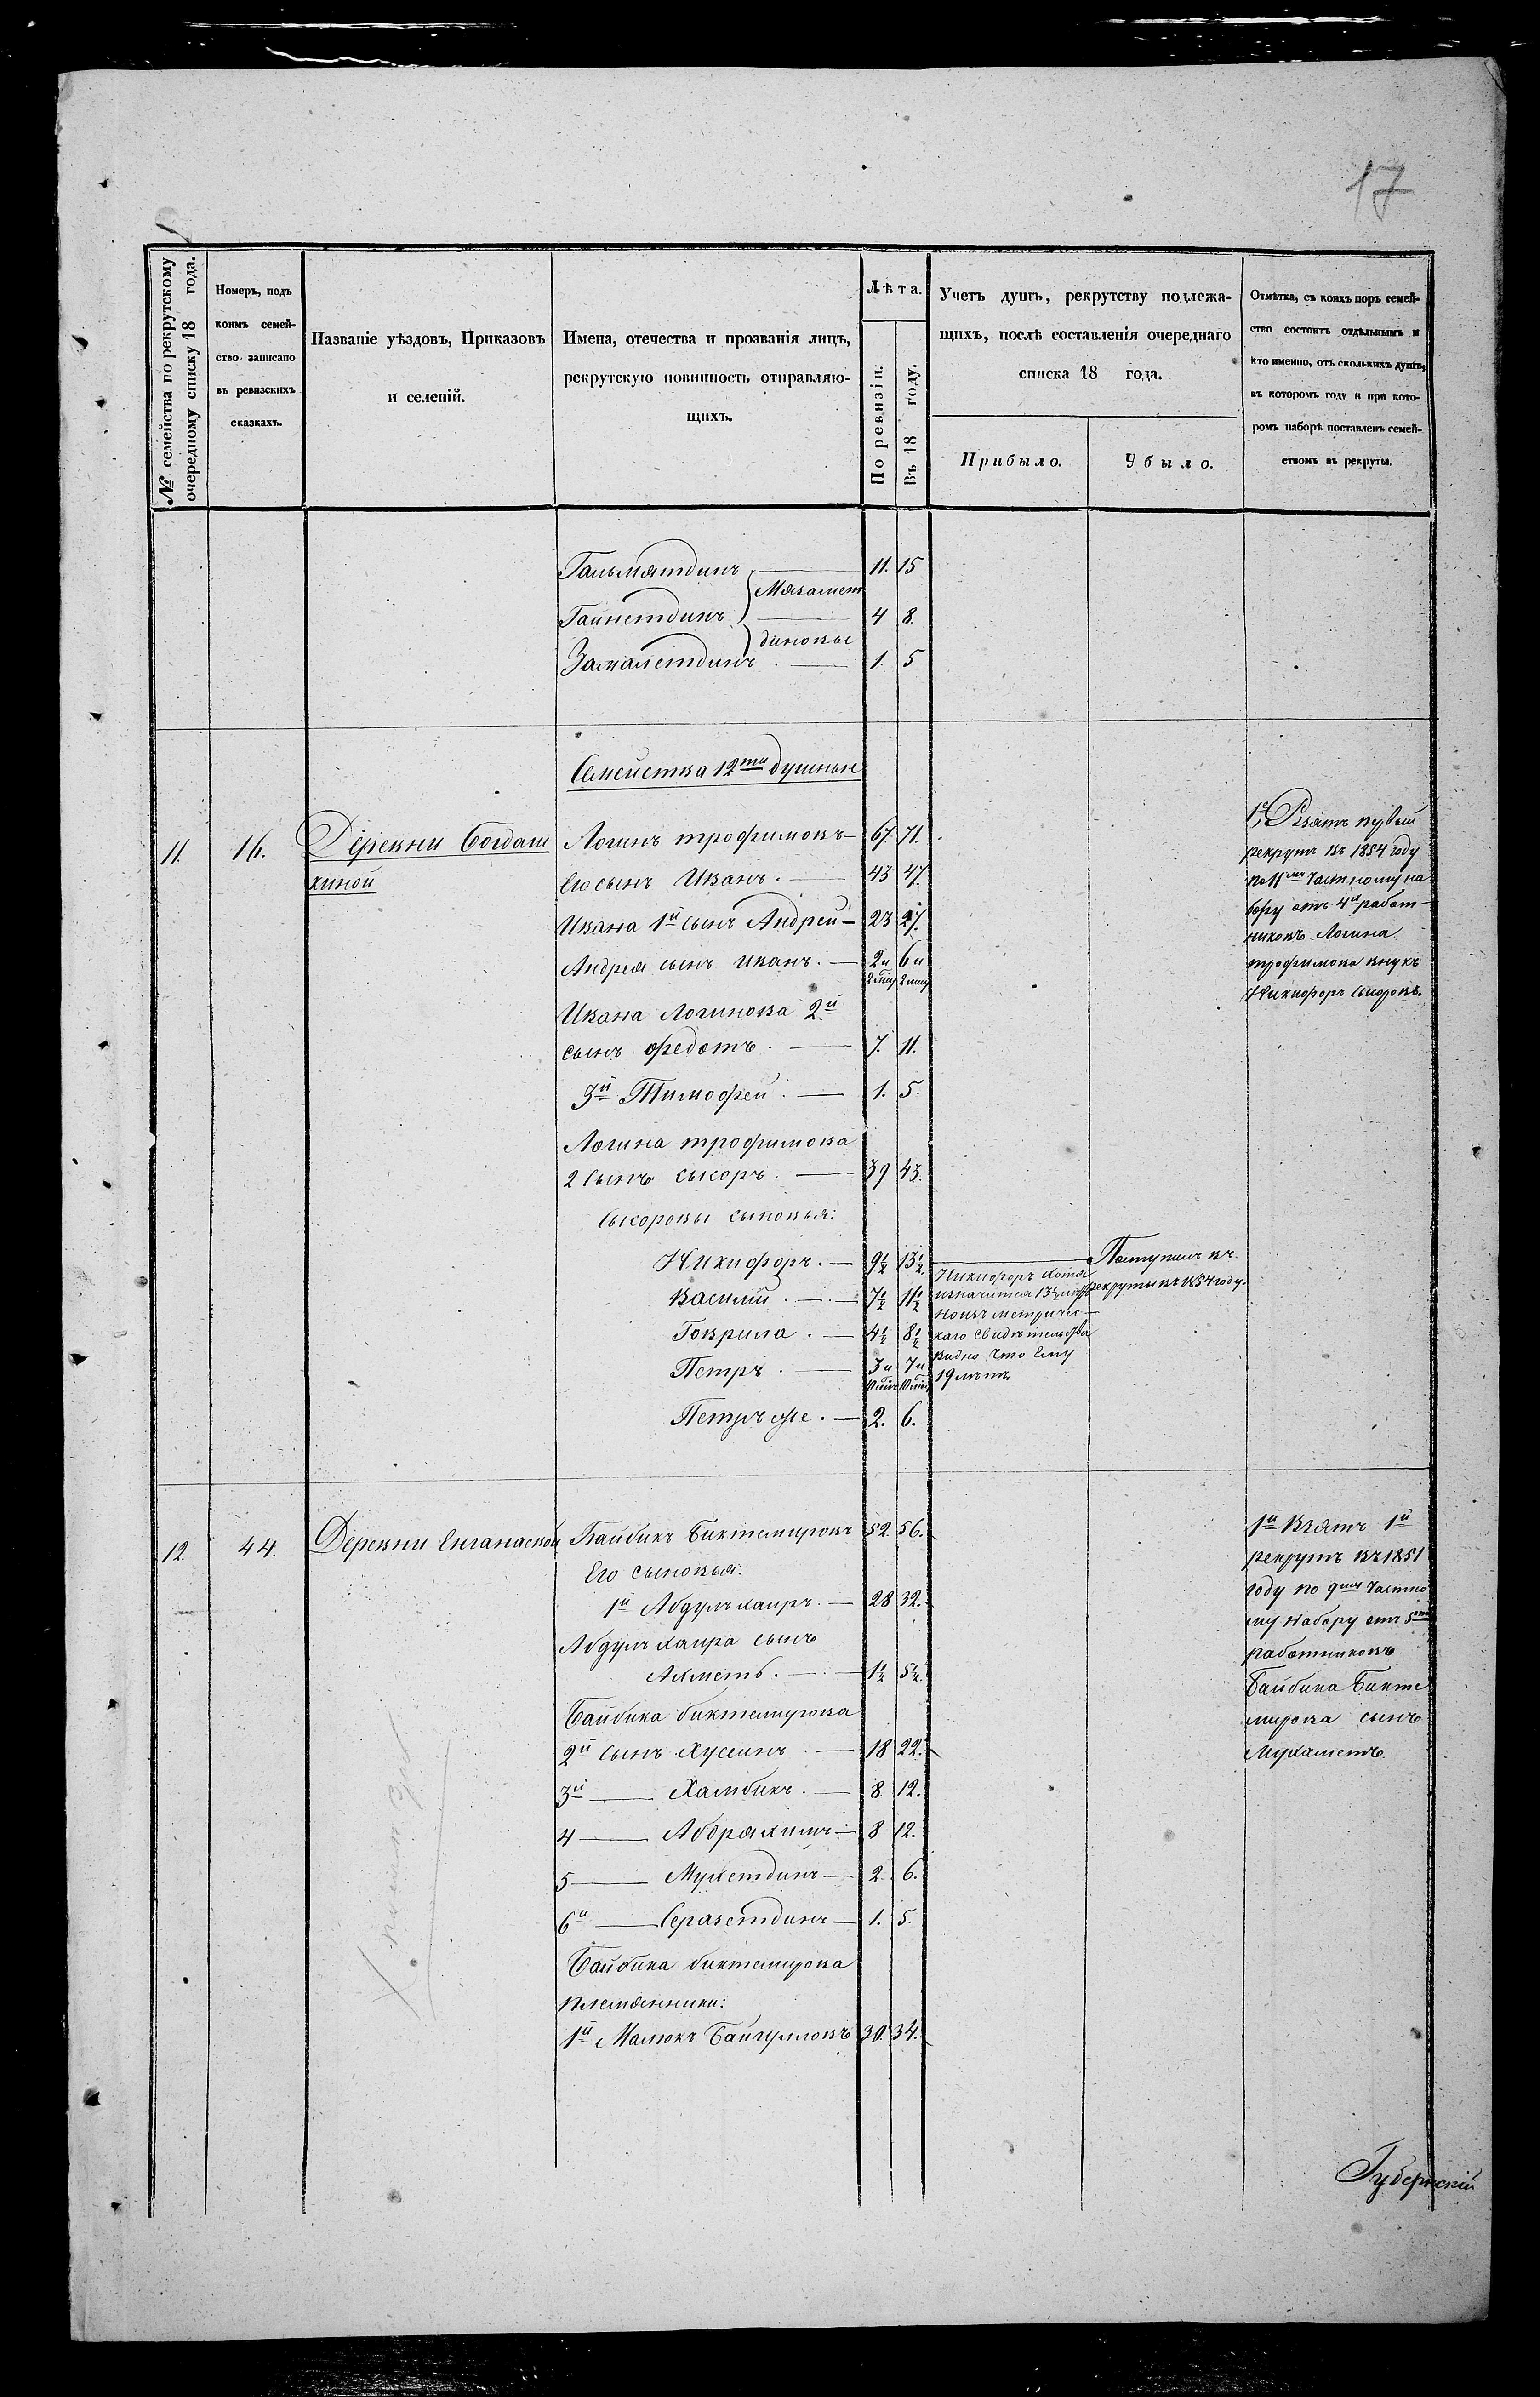 17
№ семейства по рекрутскому
очередному списку 18 года.
Номеръ, подъ
коимъ семей-
ство записано
въ ревизскихъ
сказкахъ.
Названіе уѣздовъ, Приказовъ
и селеній.
Имена, отечества и прозванія лицъ,
рекрутскую повинность отправляю-
щихъ.
Лѣта.
По ревизіи.
Въ 18 году.
Учетъ душъ, рекрутству подлежа-
щихъ, послѣ составленія очереднаго
списка 18 года.
Прибыло.
Убыло.
Отмѣтка, съ коихъ поръ семей-
ство состоитъ отдѣльнымъ и
кто именно, отъ сколькихъ душъ,
въ которомъ году и при кото-
ромъ наборѣ поставленъ семей-
ствомъ въ рекруты.
Гальмятдинъ 11. 15
Мязамет
Гайнетдинъ 4 8.
диновы
Замалетдинъ 1. 5
Семейства 12ти душныя
11. 16. Деревни Богдаш
киной
Логинъ трофимовъ 67. 71.
Его сынъ Иванъ. 43 47.
Ивана 1й сынъ Андрей 23 27.
Андрея сынъ иванъ. 2и 6и
Ивана Логинова 2й
сынъ федотъ. 7. 11.
3й Тимофей. 1. 5.
Логина трофимова
2 сынъ сысоръ. 39 43.
Сысоровы сыновья:
Никифоръ. 9½ 13½
Василій. 7½ 11½
Гаврила. 4½ 8½
Петръ. 3и 7и
Петръ же. 2. 6.
Никифоръ хотя
значится 13½ лѣтъ
но изъ метричес-
каго свидѣтельства
видно что ему
19 лѣтъ
Поступилъ въ
рекруты въ 1854 году.
1й Взятъ первый
рекрутъ въ 1854 году
по 11му частному на
бору отъ 4х работ-
никовъ Логина
трофимова внукъ
Никифоръ Сысоровъ.
12. 44. Деревни Енганаевой
Байбикъ Биктемировъ 52. 56.
Его сыновья:
1й Абдулъхаиръ. 28 32.
Абдулъхаира сынъ
Ахметь. 1½ 5½.
Байбика биктемирова
2й сынъ Хусеинъ 18 22.
3й Хамбикъ. 8. 12.
4 Абдрахимъ. 8 12.
5 Мухетдинъ 2. 6.
6й Серазетдинъ 1. 5.
Байбика биктемирова
племянники:
1й Малюкъ Байгулловъ 30. 34.
1й Взятъ 1й
рекрутъ въ 1851
году по 9му частно
му набору отъ 5ти
работниковъ
Байбика Бикте
мирова сынъ
Мухаметъ.
Губернскій